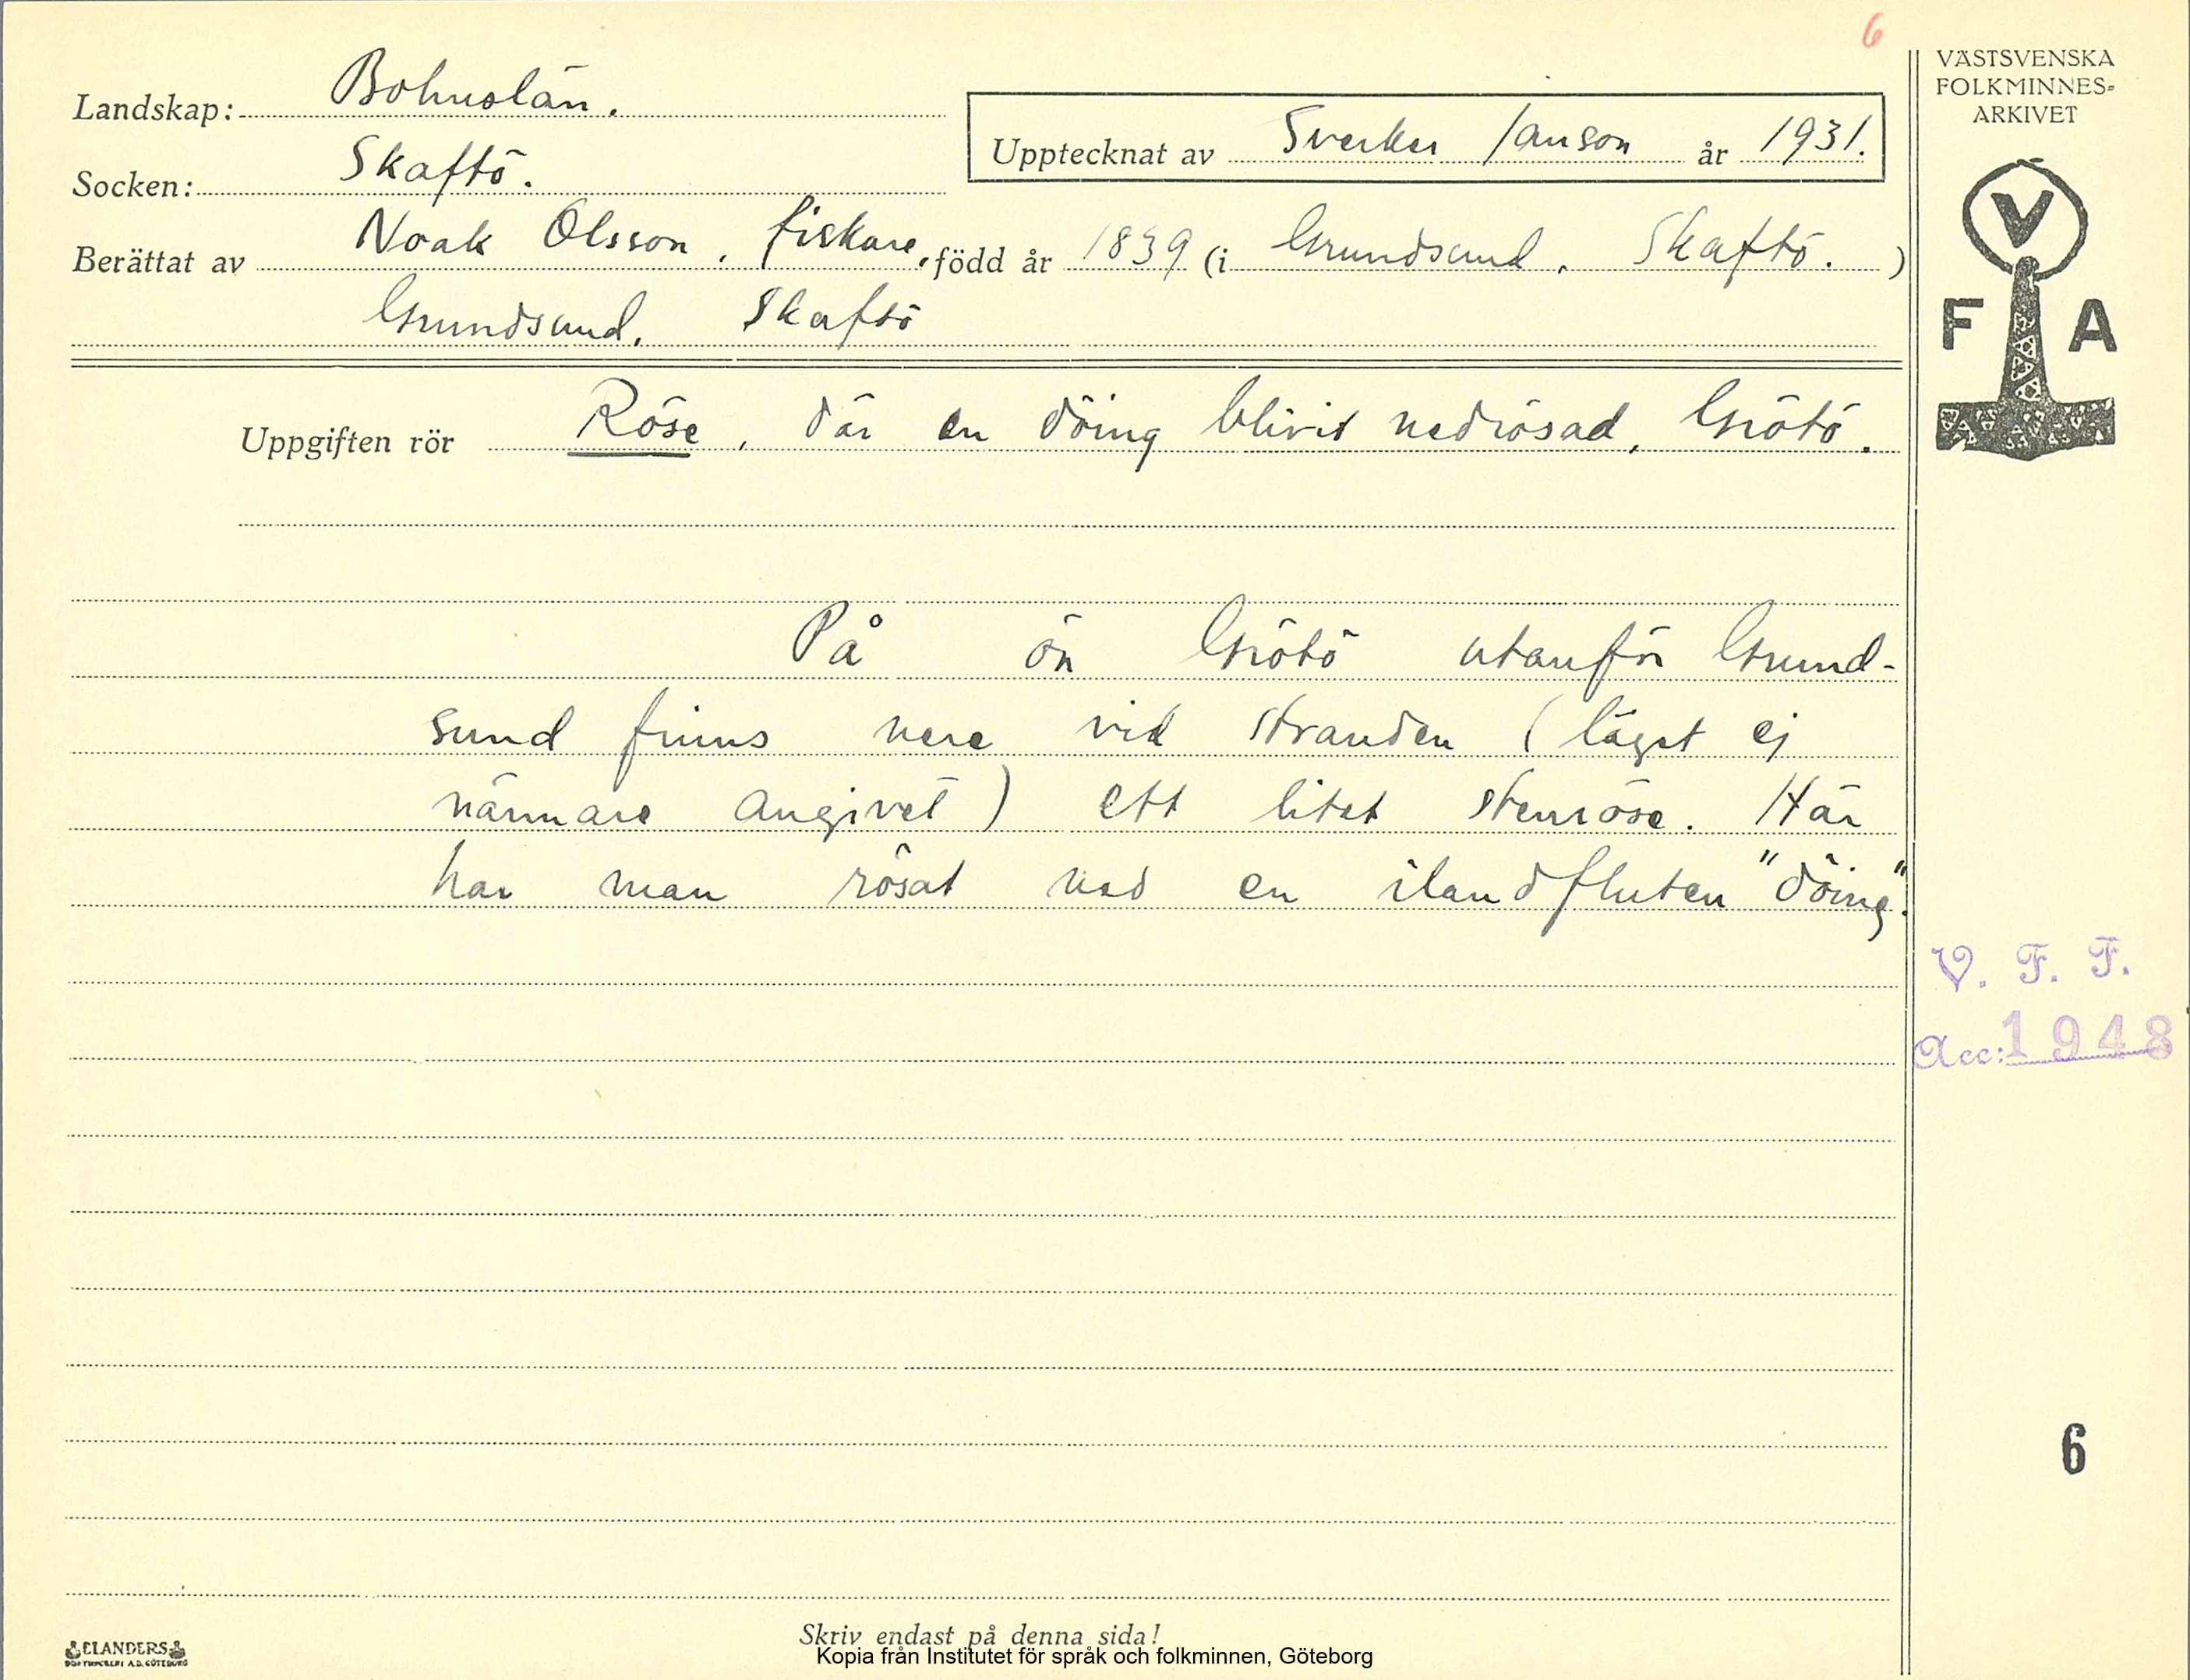 6
VÄSTSVENSKA
FOLKMINNES-
ARKIVET
Landskap: Bohuslän.
Upptecknat av Sverker Janson år 1931.
Socken: Skaftö.
Berättat av Noak Olsson, fiskare, född år 1839 (i Grundsund, Skaftö. )
Grundsund, Skaftö
V
F A
Uppgiften rör Röse, där en döing blivit nedrösad, Grötö.
På ön Grötö utanför Grund-
sund finns nere vid stranden (läget ej
närmare angivet) ett litet stenröse. Här
har man rösat ned en ilandfluten "döing".
V. F. F.
Acc: 1948
6
Skriv endast på denna sida!
ELANDERS
Kopia från Institutet för språk och folkminnen, Göteborg